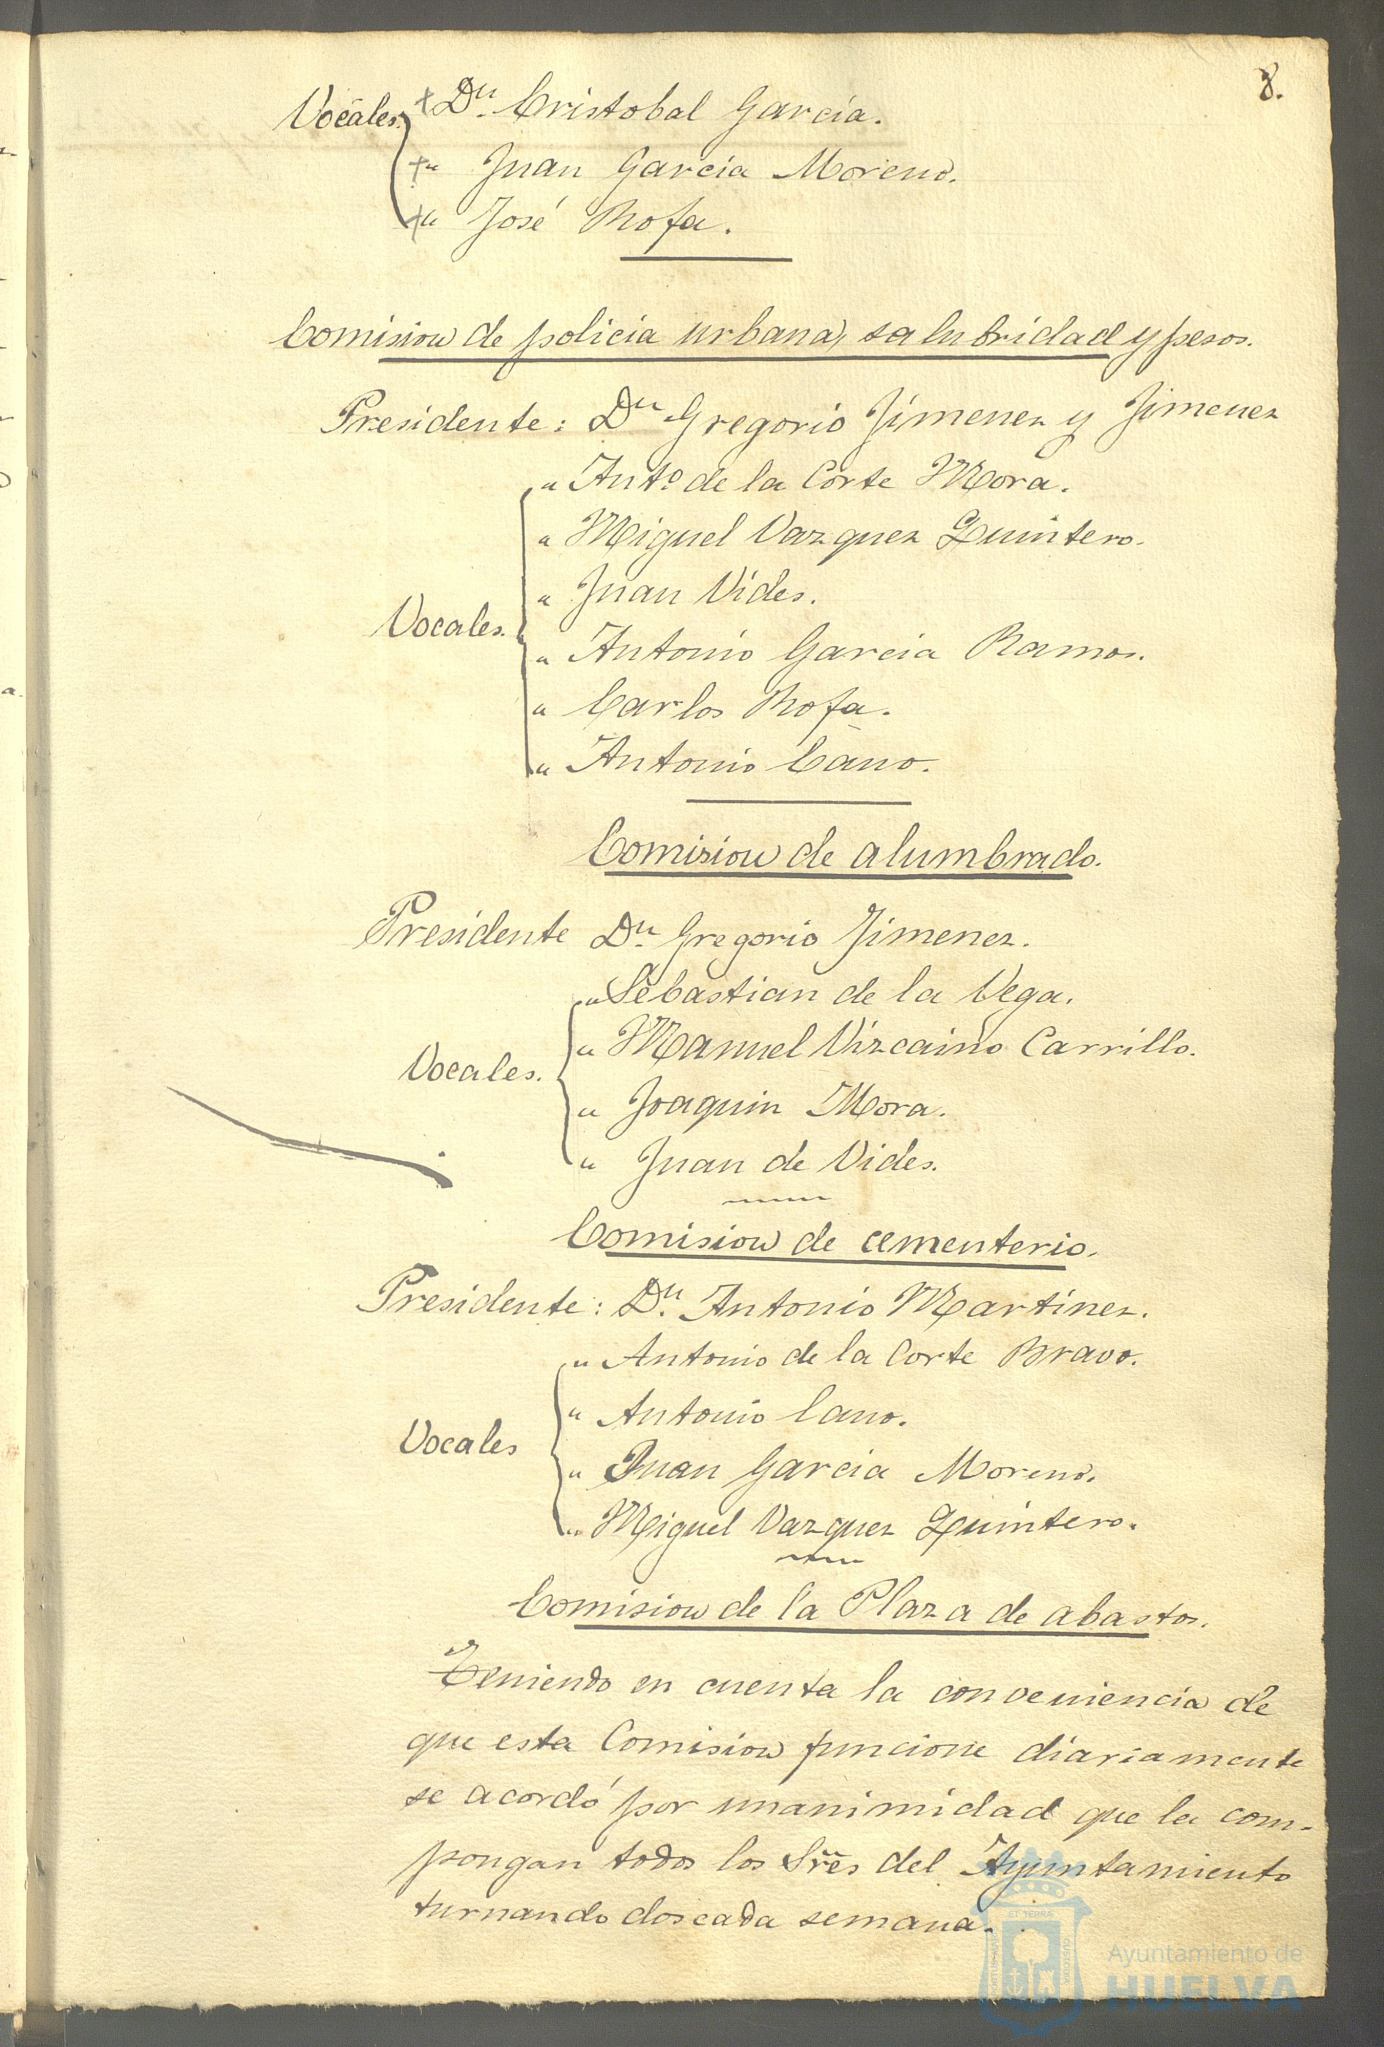 8.
Vocales. + Dn. Cristobal García.
+ " Juan Garcia Moreno.
+ " José Rofa.
Comision de policia urbana, salubridad y pesos.
Presidente: Dn Gregorio Jimenez y Jimenez
" Anto de la Corte Mora.
" Miguel Vazquez Quintero.
" Juan Vides.
Vocales.
" Antonio Garcia Ramos.
" Carlos Rofa.
" Antonio Cano.
Comision de alumbrado.
Presidente Dn. Gregorio Jimenez.
" Sebastian de la Vega.
" Manuel Vizcaino Carrillo.
Vocales.
" Joaquin Mora.
" Juan de Vides.
Comision de cementerio.
Presidente: Dn. Antonio Martinez.
" Antonio de la Corte Bravo.
" Antonio Cano.
Vocales
" Juan Garcia Moreno.
" Miguel Vazquez Quintero.
Comision de la Plaza de abastos.
Teniendo en cuenta la conveniencia de
que esta Comision funcione diariamente
se acordó por unanimidad que la com-
pongan todos los Sres del Ayuntamiento
turnando dos cada semana.
Ayuntamiento de
HUELVA